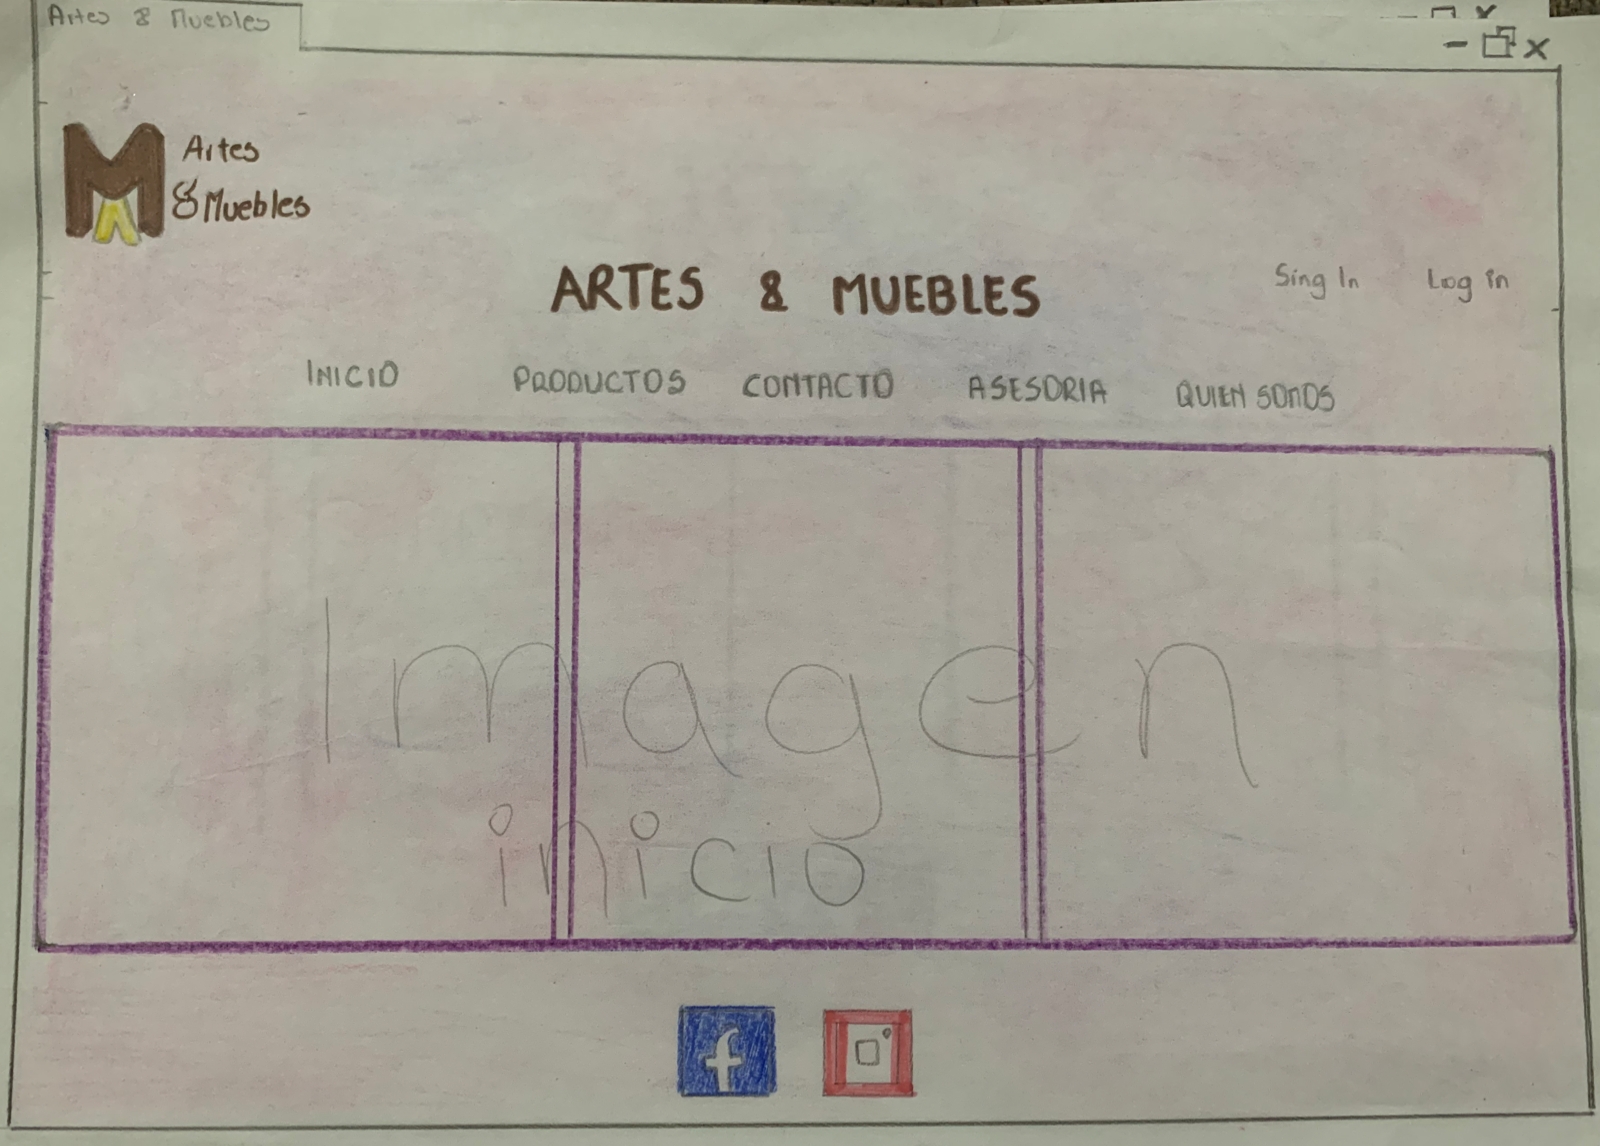 Artes & Muebles
Artes
& Muebles
ARTES & MUEBLES
Sing In Log in
INICIO PRODUCTOS CONTACTO ASESORIA QUIEN SOMOS
Imagen
inicio
f